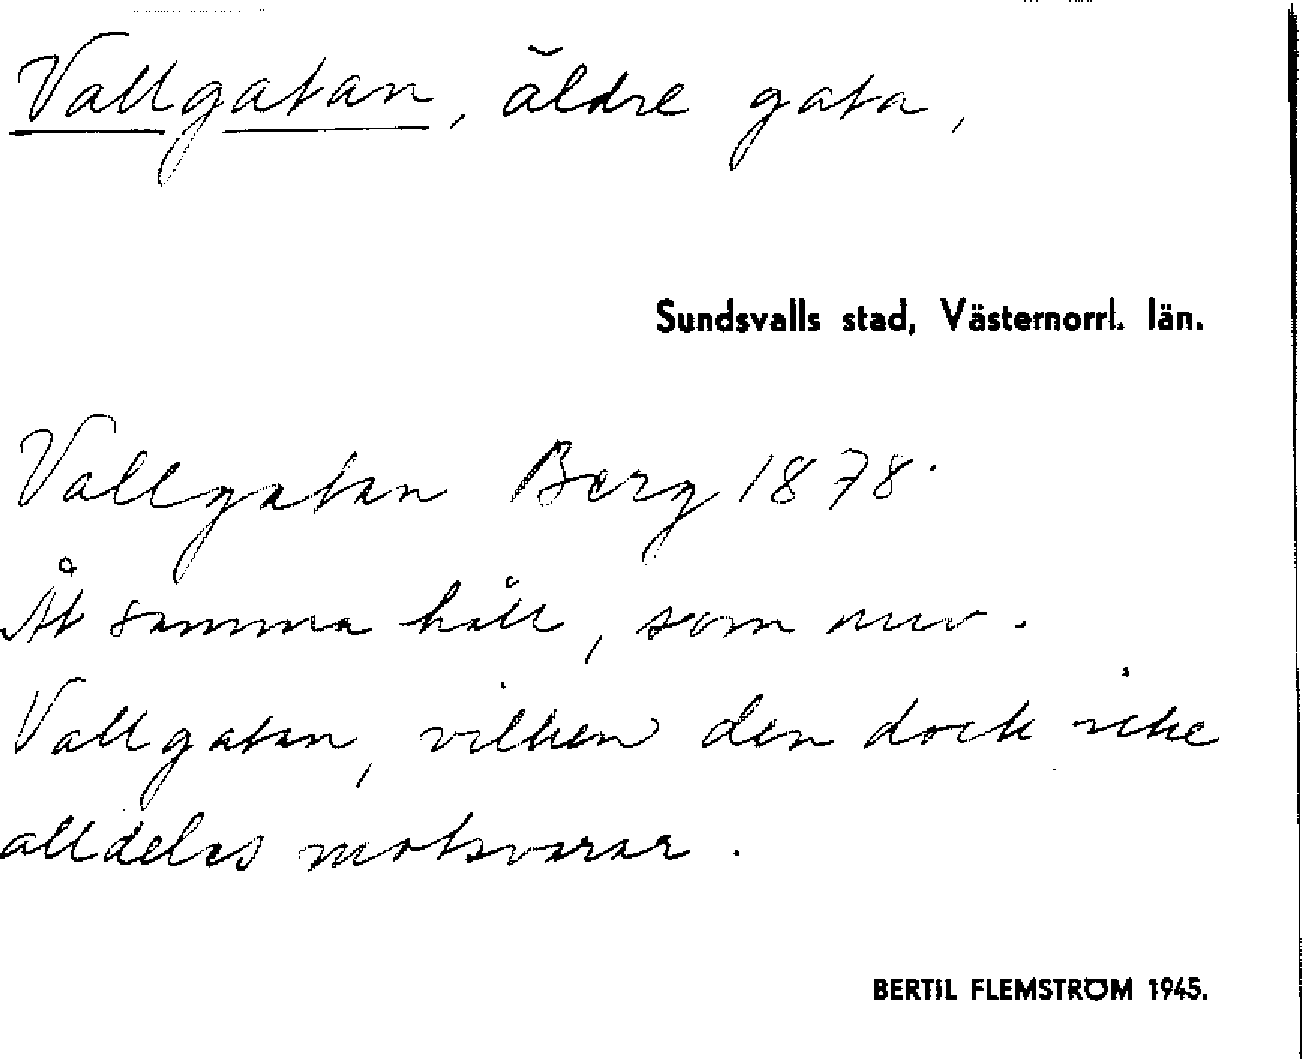 Vallgatan, äldre gata,
Sundsvalls stad, Västernorrl. län.
Vallgatan Berg 1878.
Åt samma håll, som nuv.
Vallgatan, vilken den dock icke
alldeles motsvarar.
BERTIL FLEMSTRÖM 1945.